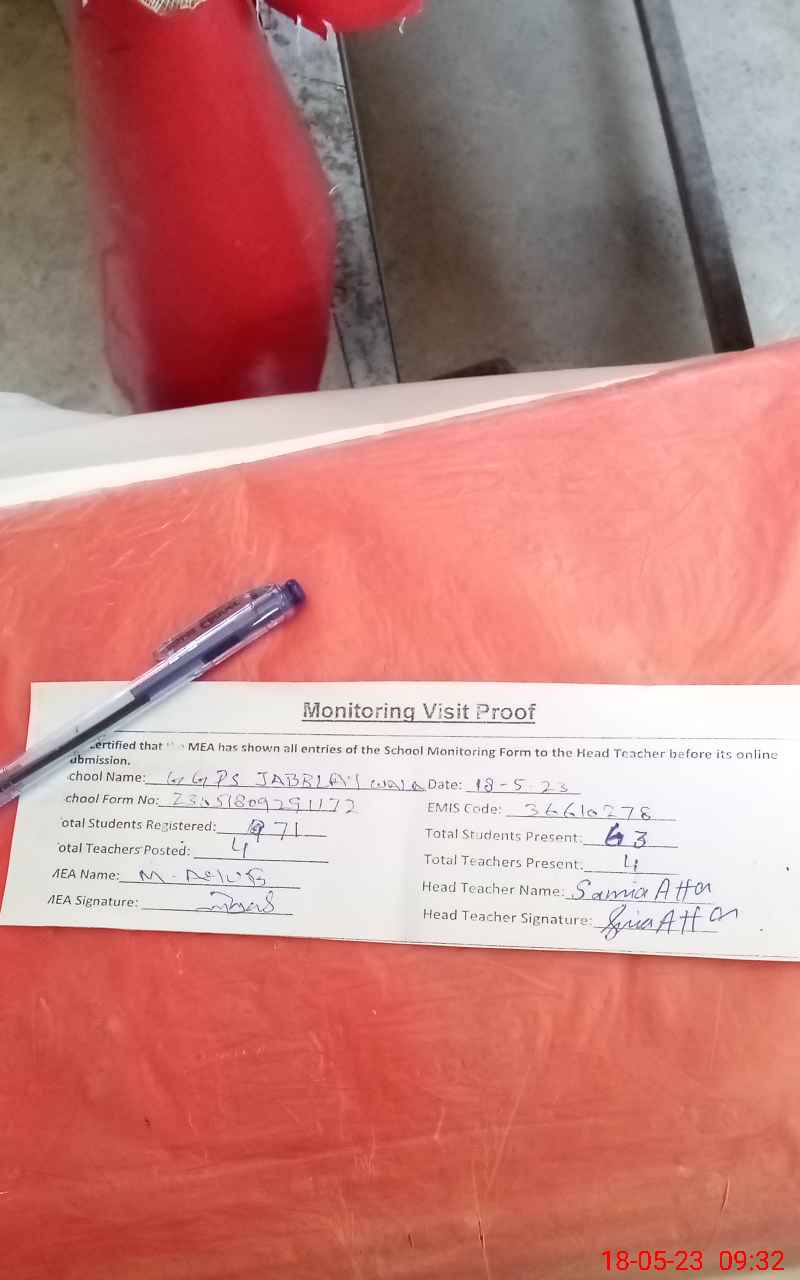 Monitoring Visit Proof
ertified that MEA has shown all entries of the School Monitoring Form to the Head Teacher before its online
ubmission.
chool Name: GGPS JABBLAY WALA Date: 18-5-23
chool Form No: EMIS Code: 36610278
otal Students Registered: 71 Total Students Present: 63
otal Teachers Posted: 4 Total Teachers Present: 4
MEA Name: M. Head Teacher Name: Samia Atta
MEA Signature: Head Teacher Signature:
18-05-23 09:32